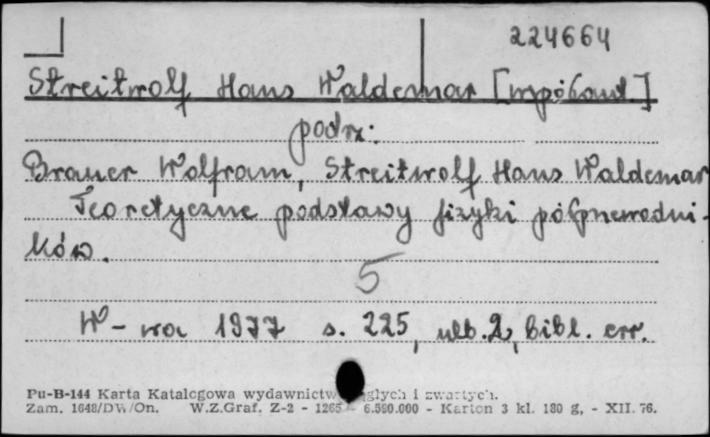 224664
Streitwolf Hans Waldemar [współaut.]
podrz:
Brauer Wolfram, Streitwolf Hans Waldemar
Teoretyczne podstawy fizyki półprzewodni-
ków.
5
W-wa 1977 s. 225, nlb. 2, bibl. err.
Pu-B-144 Karta Katalogowa wydawnictw ciągłych i zwartych.
Zam. 1648/DW/On. W.Z.Graf. Z-2 - 1265 - 6.590.000 - Karton 3 kl. 180 g, - XII. 76.